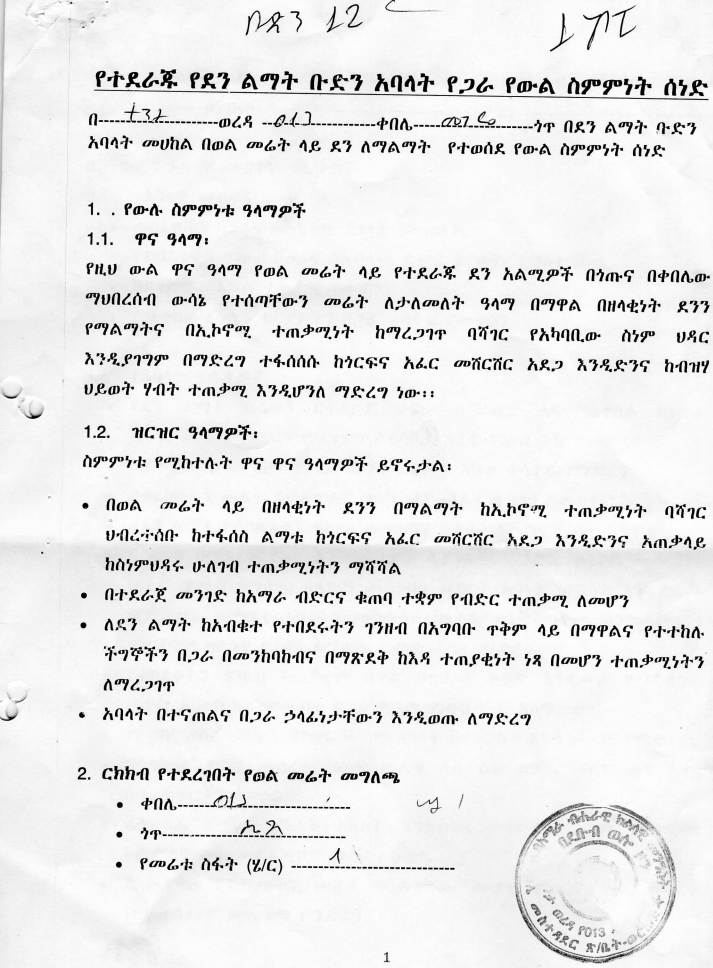 12
የተደራጁ የደን ልማት ቡድን አባላት የጋራ የውል ስምምነት ሰነድ
በ--------------------ወረዳ -------013-----------ቀበሌ--------------------ጎጥ በደን ልማት ቡድን
አባላት መሀከል በወል መሬት ላይ ደን ለማልማት የተወሰደ የውል ስምምነት ሰነድ
1. . የውሉ ስምምነቱ ዓላማዎች
1.1. ዋና ዓላማ፡
የዚህ ውል ዋና ዓላማ የወል መሬት ላይ የተደራጁ ደን አልሚዎች በጎጡና በቀበሌው
ማህበረሰብ ውሳኔ የተሰጣቸውን መሬት ለታለመለት ዓላማ በማዋል በዘላቂነት ደንን
የማልማትና በኢኮኖሚ ተጠቃሚነት ከማረጋገጥ ባሻገር የአካባቢው ስነም ህዳር
እንዲያገግም በማድረግ ተፋሰሰሱ ከጎርፍና አፈር መሸርሸር አደጋ እንዲድንና ከብዝሃ
ህይወት ሃብት ተጠቃሚ እንዲሆንለ ማድረግ ነው፡፡
1.2. ዝርዝር ዓላማዎች፡
ስምምነቱ የሚከተሉት ዋና ዋና ዓላማዎች ይኖሩታል፡
• በወል መሬት ላይ በዘላቂነት ደንን በማልማት ከኢኮኖሚ ተጠቃሚነት ባሻገር
ህብረተሰቡ ከተፋሰስ ልማቱ ከጎርፍና አፈር መሸርሸር አደጋ እንዲድንና አጠቃላይ
ከስነምህዳሩ ሁለገብ ተጠቃሚነትን ማሻሻል
• በተደራጀ መንገድ ከአማራ ብድርና ቁጠባ ተቋም የብድር ተጠቃሚ ለመሆን
• ለደን ልማት ከአብቁተ የተበደሩትን ገንዘብ በአግባቡ ጥቅም ላይ በማዋልና የተተከሉ
ችግኞችን በጋራ በመንከባከብና በማጽደቅ ከእዳ ተጠያቂነት ነጻ በመሆን ተጠቃሚነትን
ለማረጋገጥ
• አባላት በተናጠልና በጋራ ኃላፊነታቸውን እንዲወጡ ለማድረግ
2. ርክክብ የተደረገበት የወል መሬት መግለጫ
• ቀበሌ------013----------------------
• ጎጥ------------------------------
• የመሬቱ ስፋት (ሄ/ር) -------1-----------------------
በአማራ ብሔራዊ ክልላዊ መንግስት
በደቡብ ወሎ ዞን
ወረዳ የ013
1